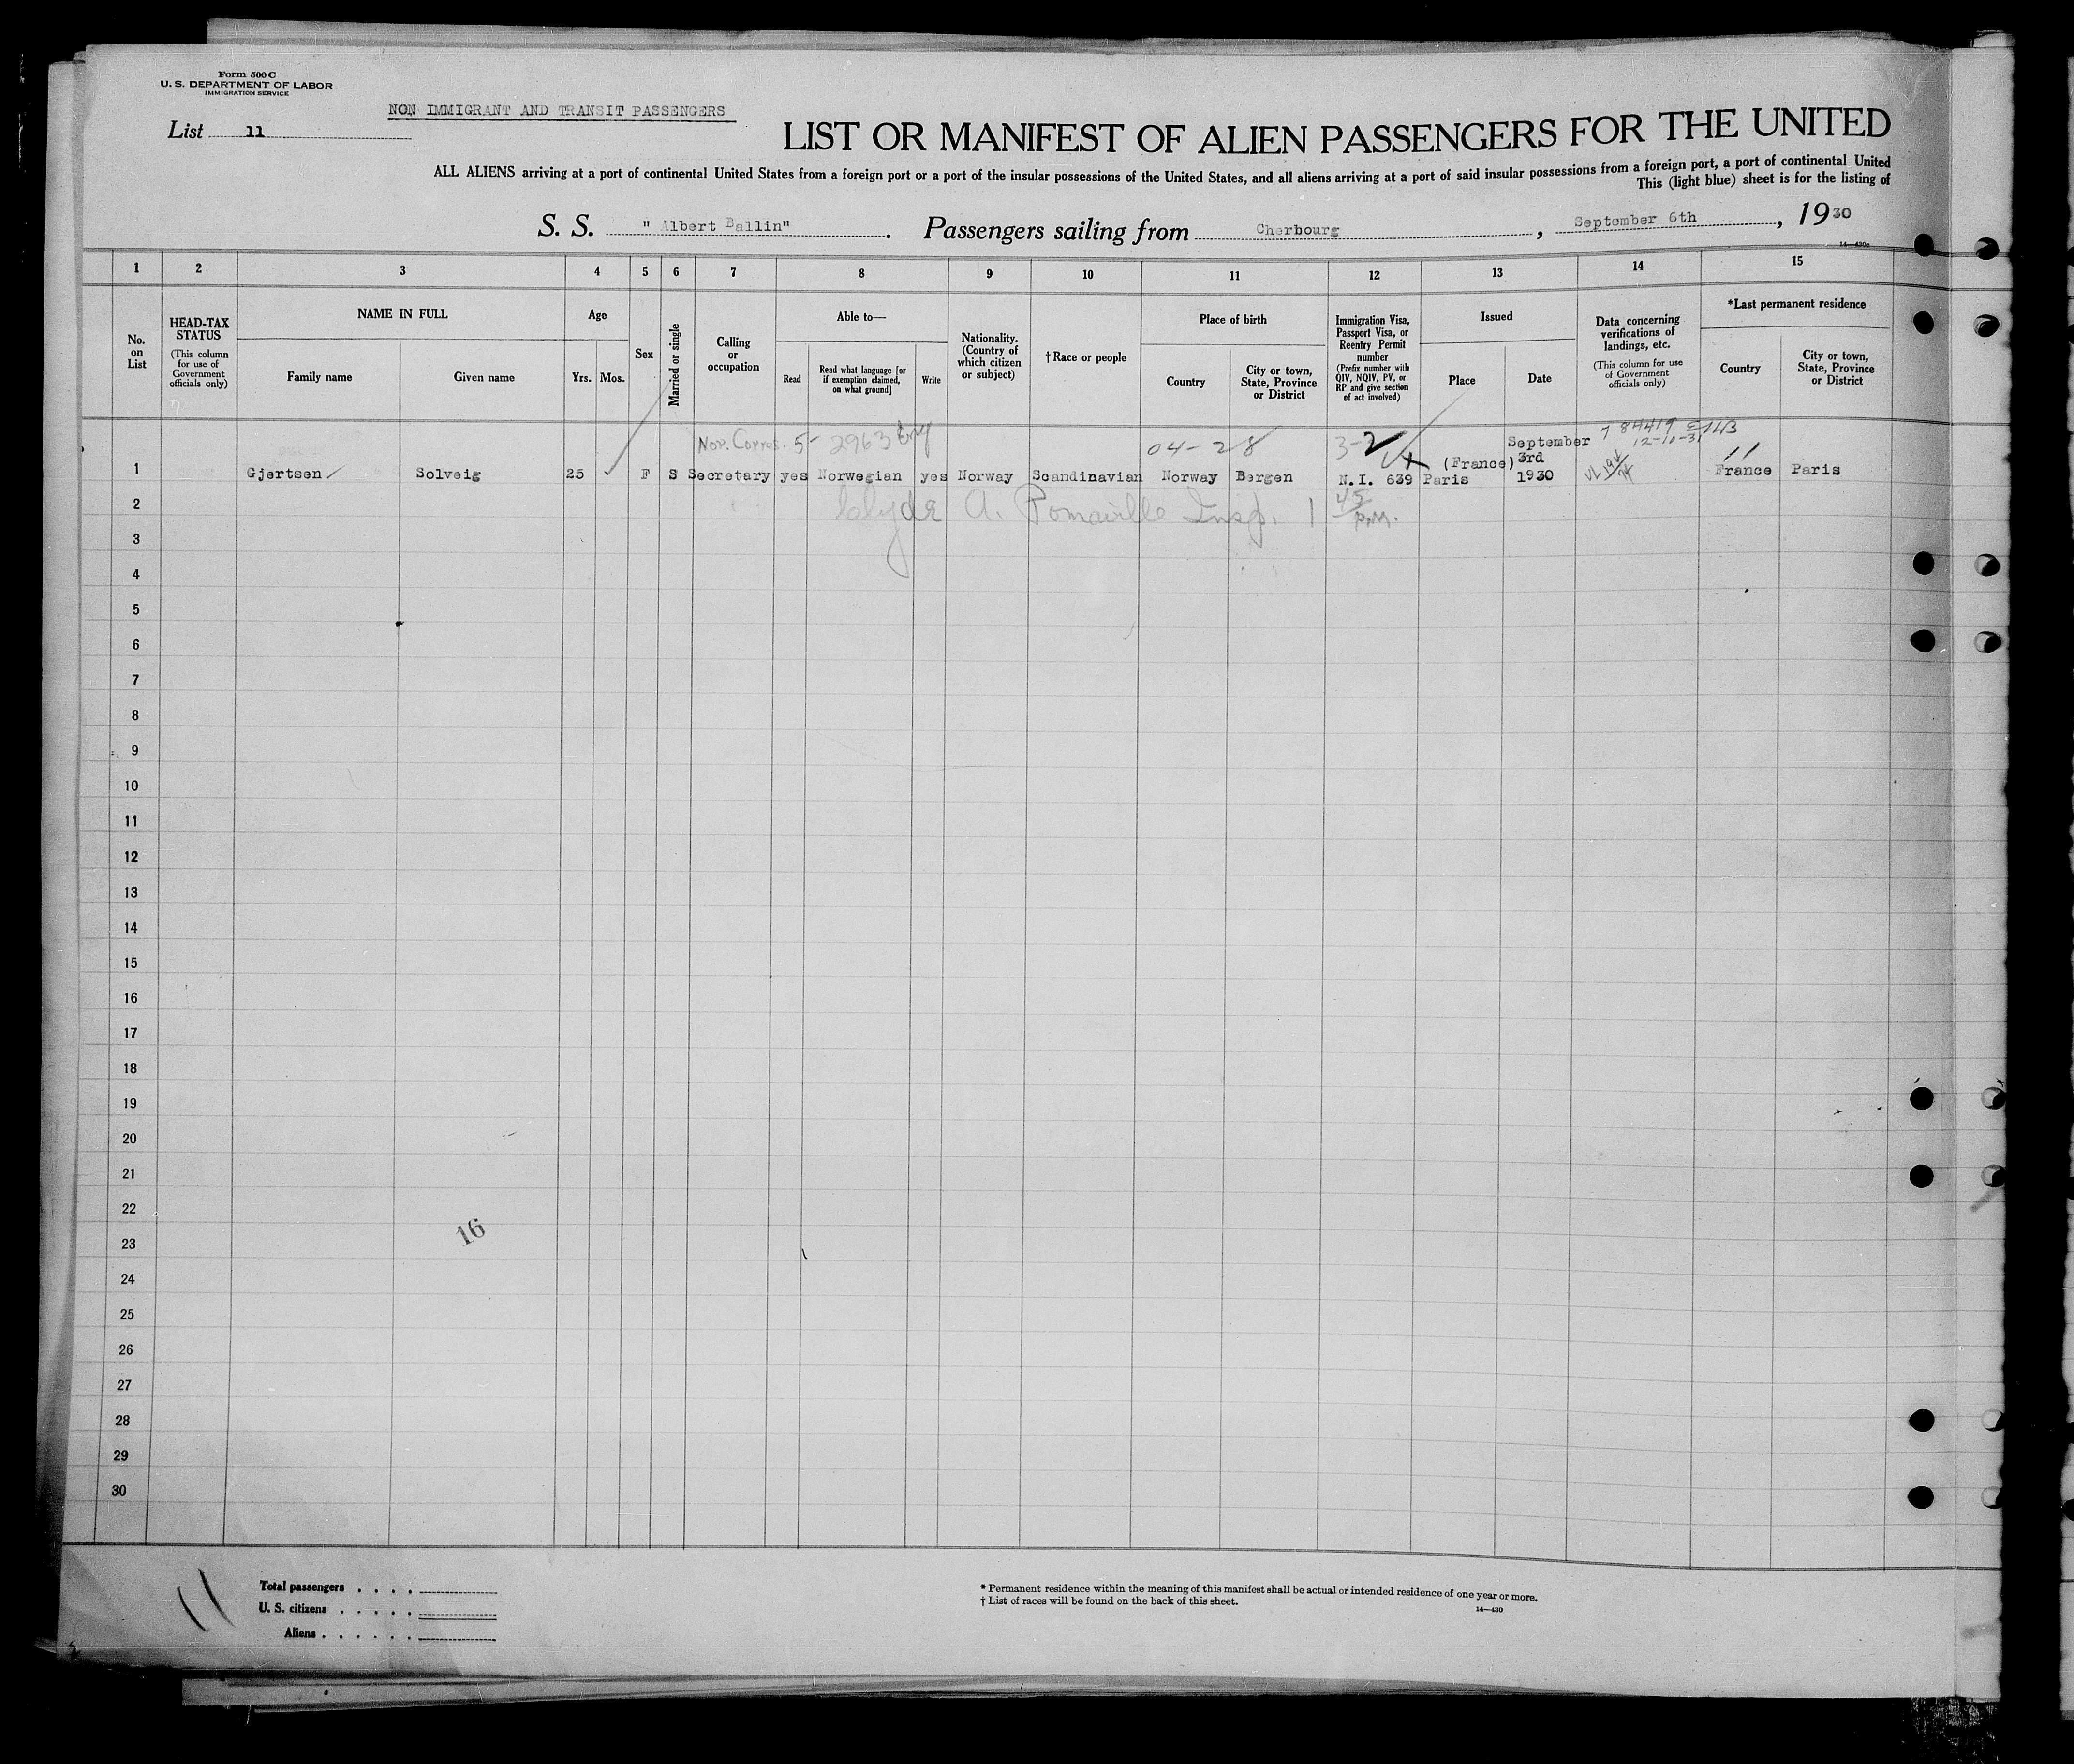 Form 500 C
U. S. DEPARTMENT OF LABOR
IMMIGRATION SERVICE
NON IMMIGRANT AND TRANSIT PASSENGERS
List 11
LIST OR MANIFEST OF ALIEN PASSENGERS FOR THE UNITED
ALL ALIENS arriving at a port of continental United States from a foreign port or a port of the insular possessions of the United States, and all aliens arriving at a port of said insular possessions from a foreign port, a port of continental United
This (light blue) sheet is for the listing of
S. S. " Albert Ballin" . Passengers sailing from Cherbourg , September 6th , 1930
14—430c
1 2 3 4 5 6 7 8 9 10 11 12 13 14 15
No. on List
HEAD-TAX STATUS
(This column for use of Government officials only)
NAME IN FULL
Family name
Given name
Age
Yrs.
Mos.
Sex
Married or single
Calling or occupation
Able to—
Read
Read what language [or if exemption claimed, on what ground]
Write
Nationality. (Country of which citizen or subject)
†Race or people
Place of birth
Country
City or town, State, Province or District
Immigration Visa, Passport Visa, or Reentry Permit number
(Prefix number with QIV, NQIV, PV, or RP and give section of act involved)
Issued
Place
Date
Data concerning verifications of landings, etc.
(This column for use of Government officials only)
*Last permanent residence
Country
City or town, State, Province or District
5- 2963 04-28 3-2 September 7 84419
12-10-31
(France) 3rd
1 Gjertsen Solveig 25 F S Secretary yes Norwegian yes Norway Scandinavian Norway Bergen N.I. 639 Paris 1930 France Paris
2 Clyde A. Pomaville Insp. 1 45 P.M.
3
4
5
6
7
8
9
10
11
12
13
14
15
16
17
18
19
20
21
22
16
23
24
25
26
27
28
29
30
11
Total passengers . . . .
U. S. citizens . . . . .
Aliens . . . . . .
* Permanent residence within the meaning of this manifest shall be actual or intended residence of one year or more.
† List of races will be found on the back of this sheet.
14—430